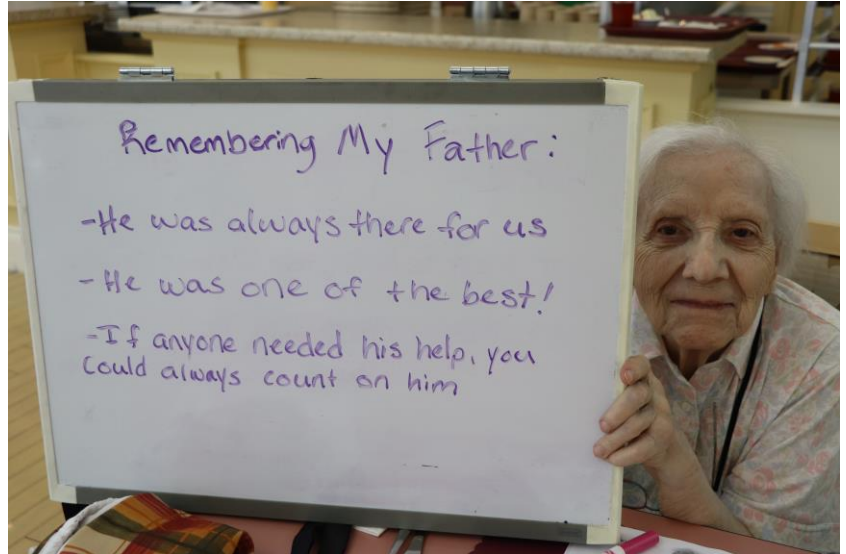 Remembering My Father:
-He was always there for us
-He was one of the best!
-If anyone needed his help, you
could always count on him